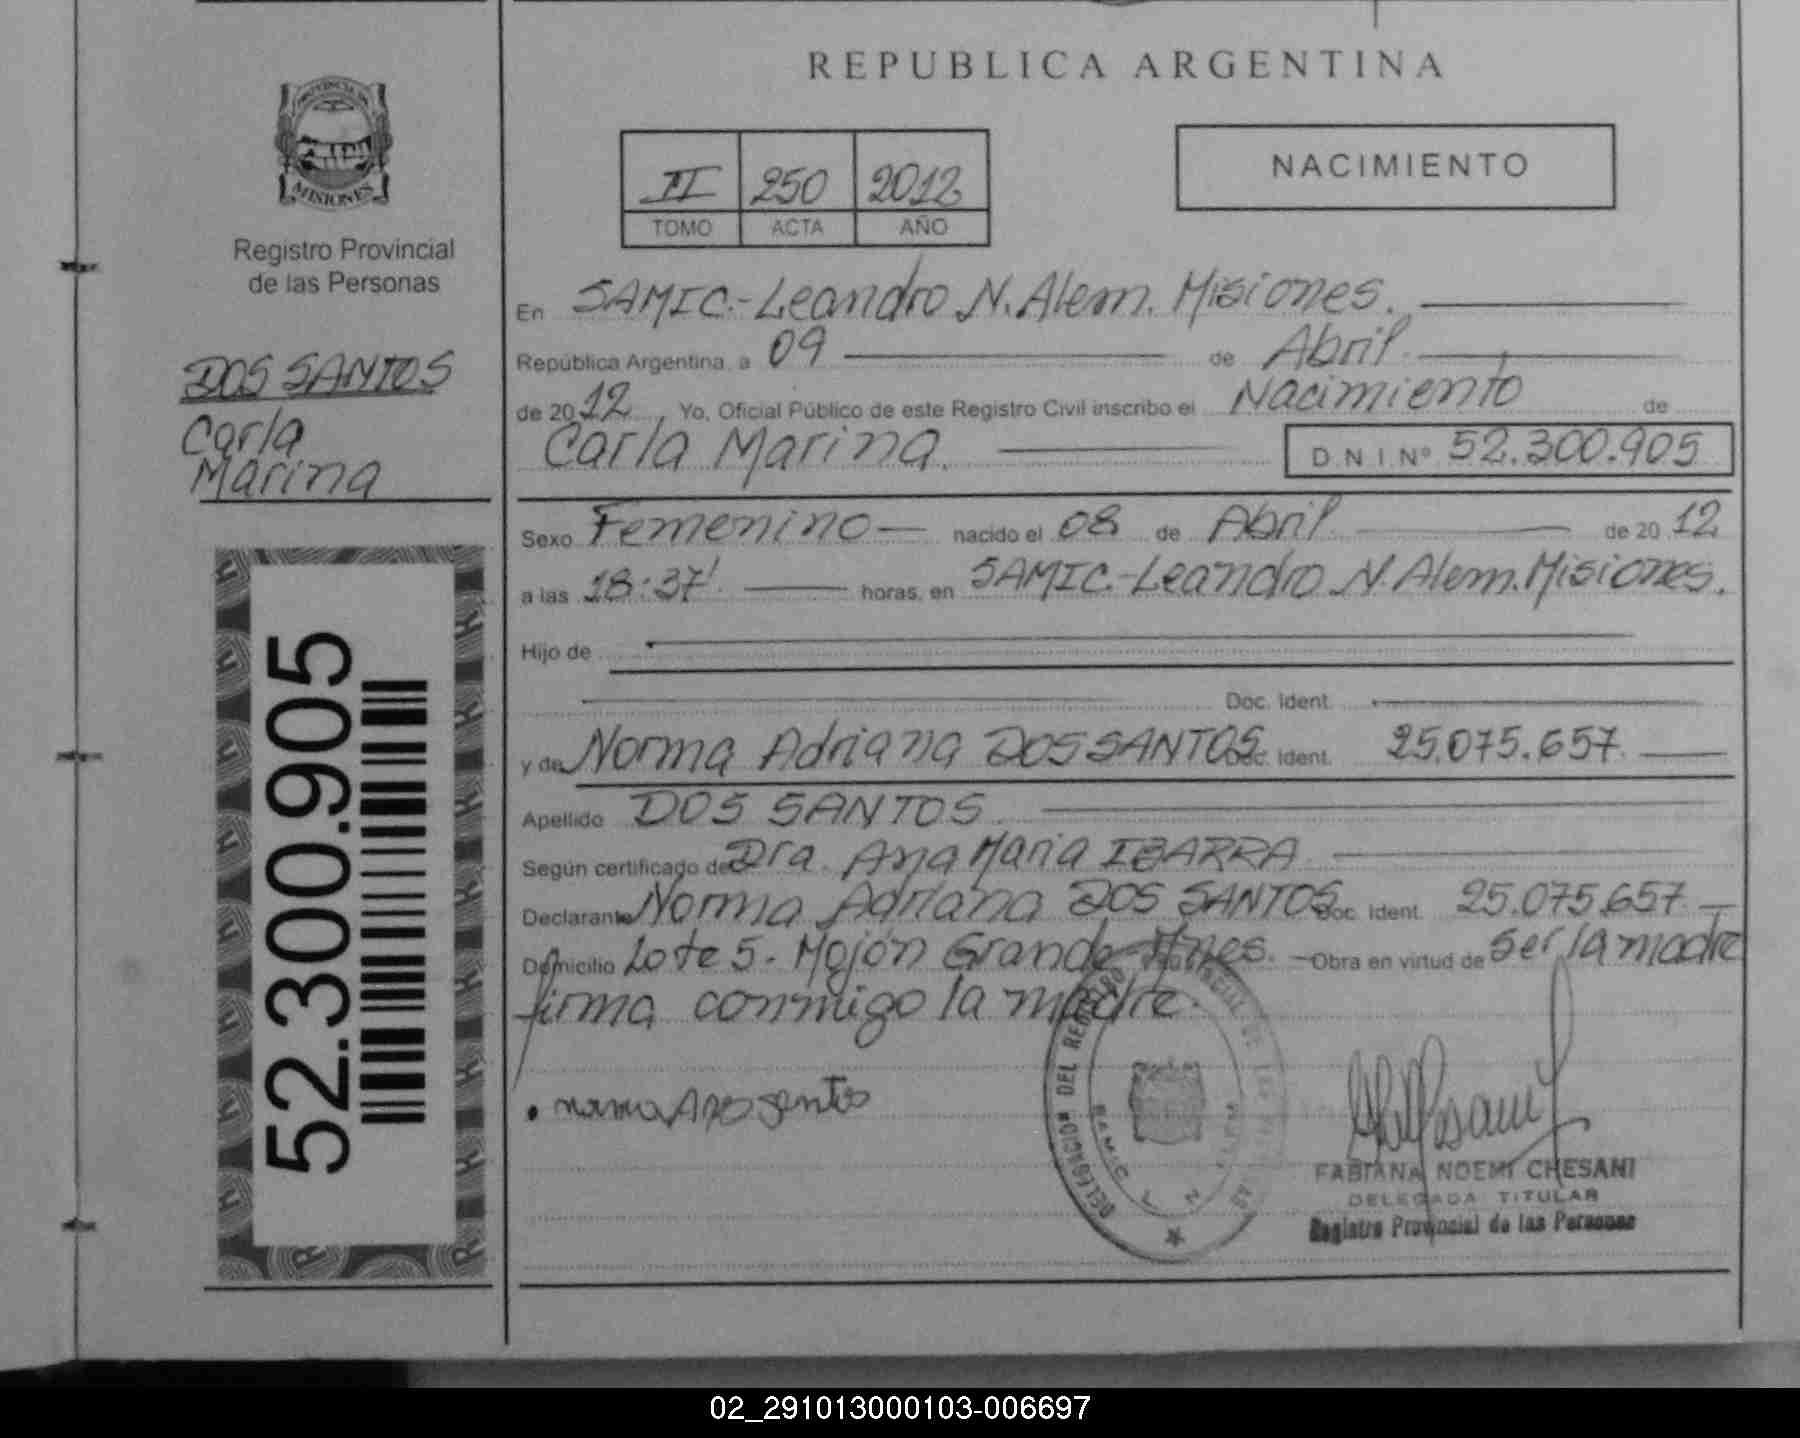 PROVINCIA DE
MISIONES
Registro Provincial
de las Personas
DOS SANTOS
Carla
Marina
52.300.905
REPUBLICA ARGENTINA
II 250 2012
TOMO ACTA AÑO
NACIMIENTO
En SAMIC.-Leandro N. Alem. Misiones.
República Argentina, a 09 de Abril.
de 2012, Yo, Oficial Público de este Registro Civil inscribo el Nacimiento de
Carla Marina. D.N.I.Nº 52.300.905
Sexo Femenino nacido el 08 de Abril. de 2012
a las 18:37' horas, en SAMIC.-Leandro N. Alem. Misiones.
Hijo de
Doc. Ident.
y de Norma Adriana DOS SANTOS Doc. Ident. 25.075.657.
Apellido DOS SANTOS.
Según certificado de Dra. Ana Maria IBARRA.
Declarante Norma Adriana DOS SANTOS Doc. Ident. 25.075.657.
Domicilio Lote 5. Mojón Grande- Mnes. Obra en virtud de Ser la madre
firma conmigo la madre.
DELEGACION DEL REGISTRO PROVINCIAL DE LAS PERSONAS
SAMIC L N ALEM
FABIANA NOEMI CHESANI
DELEGADA TITULAR
Registro Provincial de las Personas
02_291013000103-006697